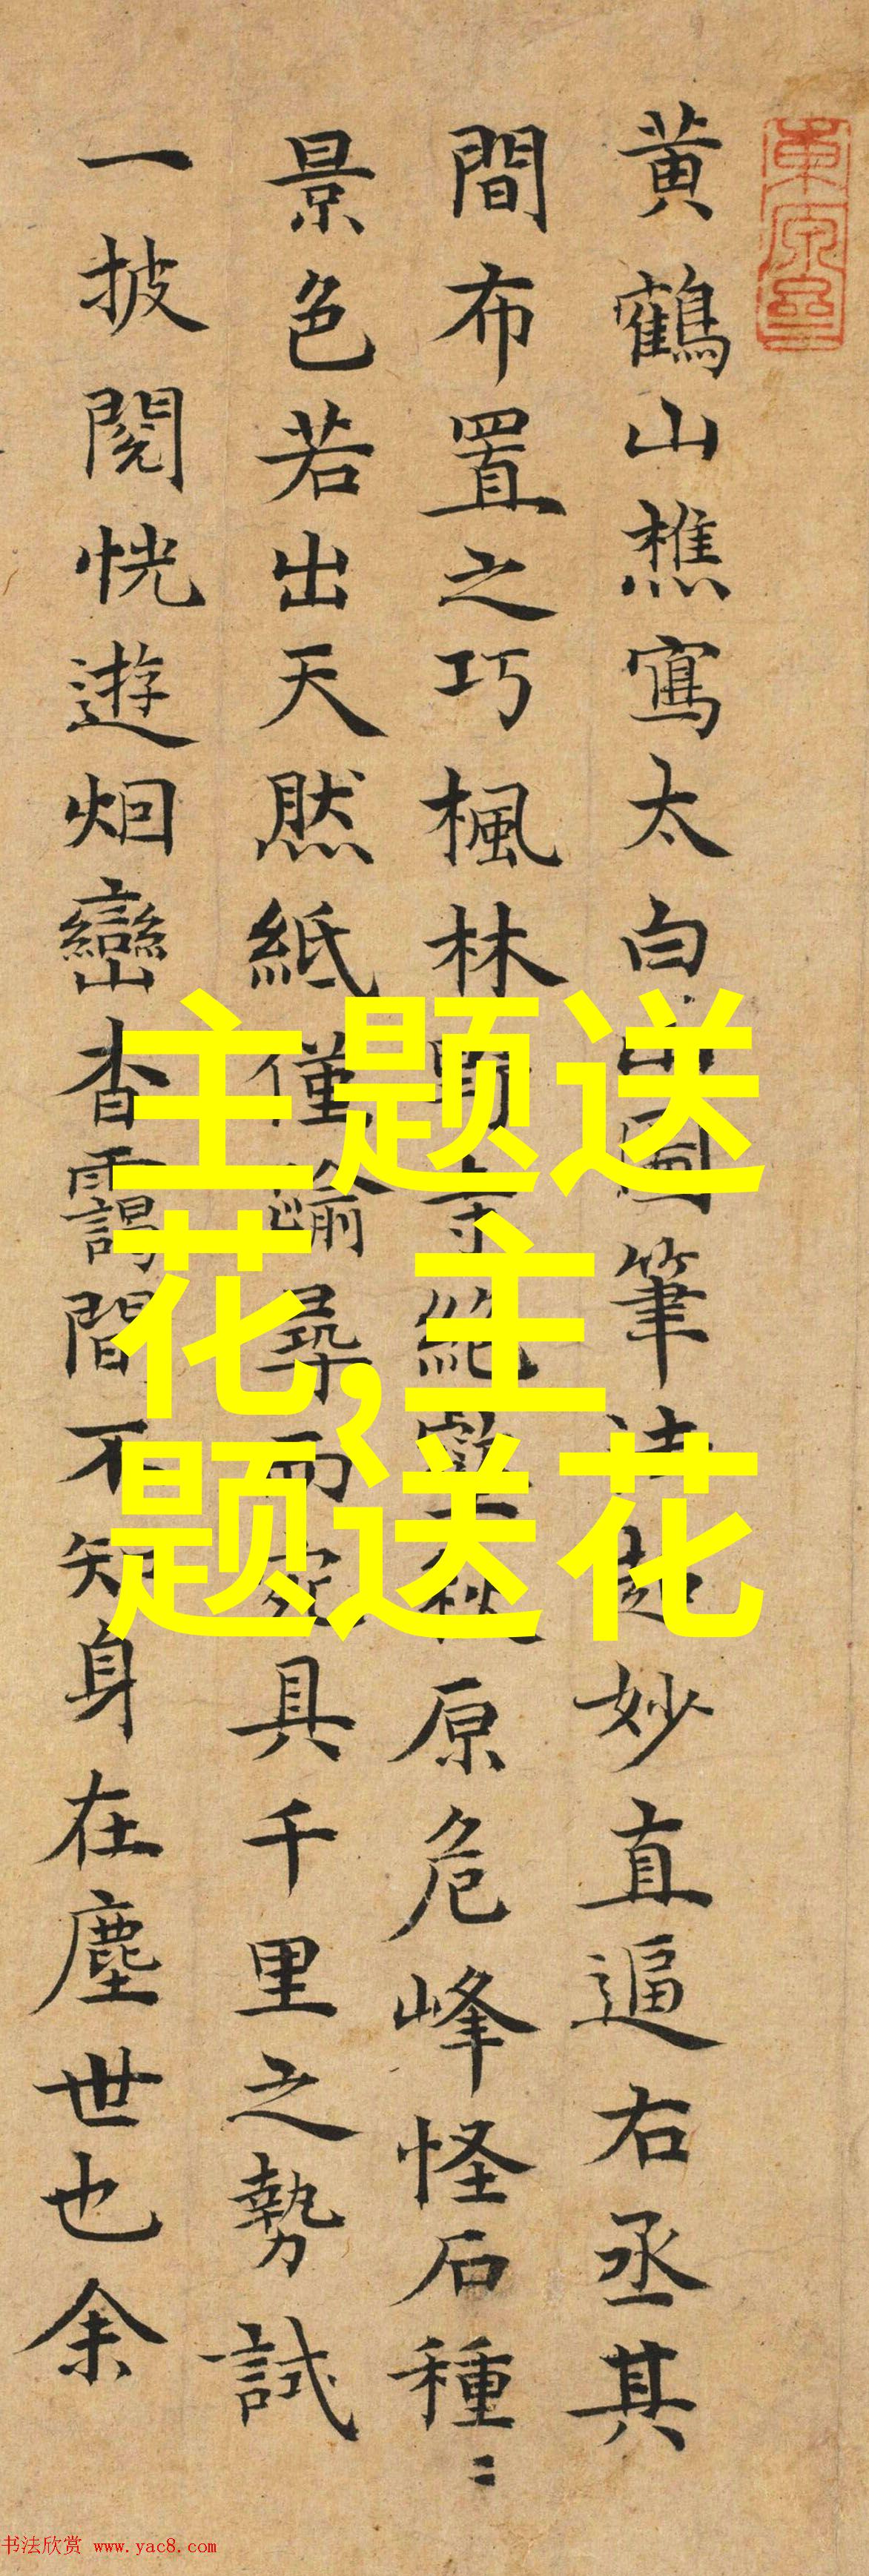 黄鶴山樵寫太白山圖筆法起妙直逼右丞其
間布置之巧楓林野寺絶壑秋原危峰怪石種〻
景色若出天然紙僅踰尋而定具千里之勢試
一披閲恍遊烟巒杳靄間不知身在塵世也余
主题送
花,主
题送花
书法欣赏 www.yac8.com